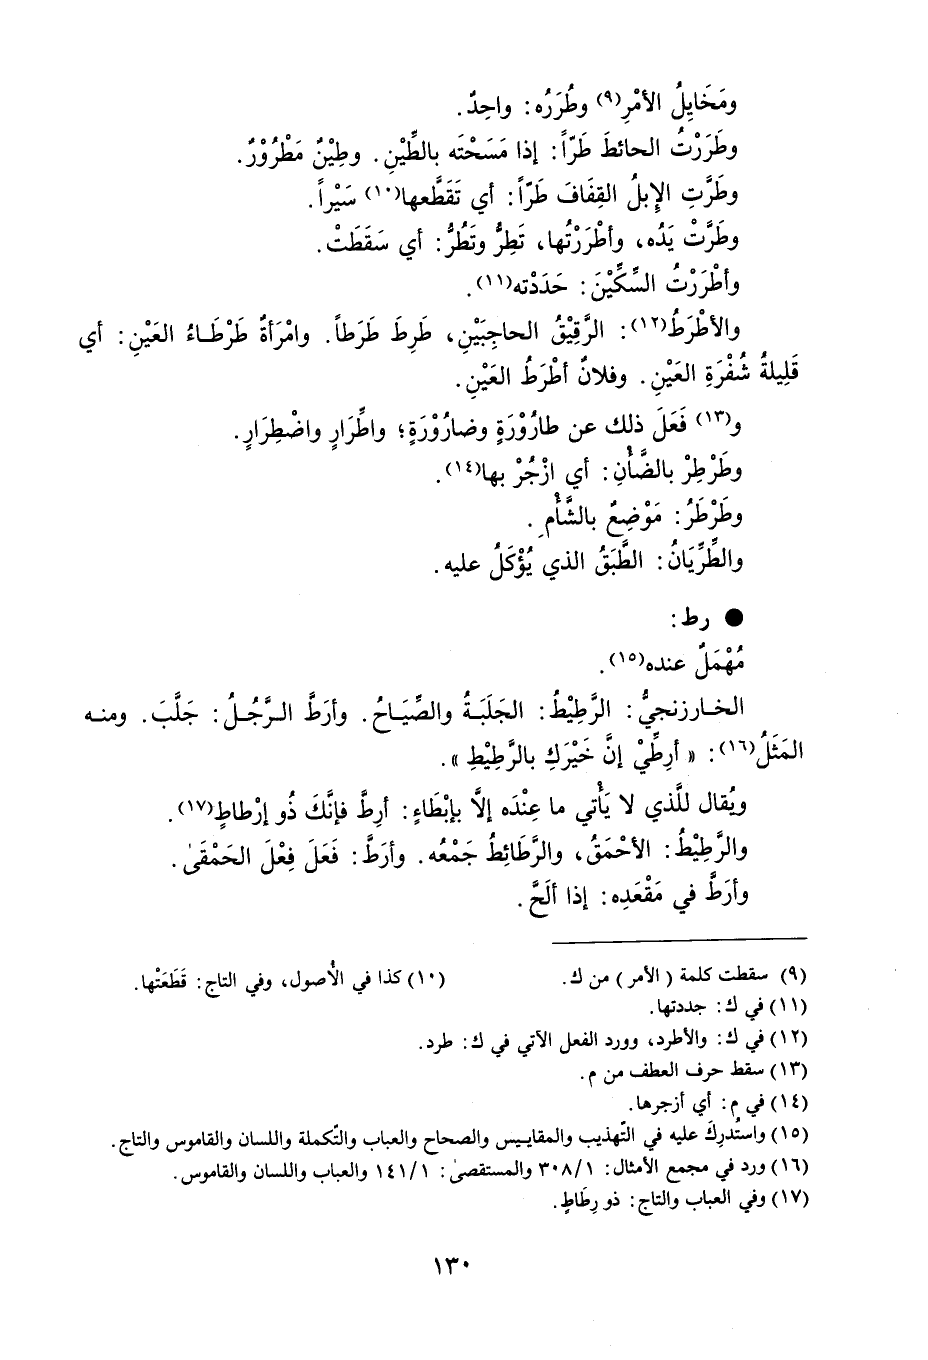 ومَخَايِلُ الأمْرِ(٩) وطُرَرُه: واحِدٌ.
وطَرَرْتُ الحائطَ طَرّاً: إذا مَسَحْتَه بالطِّيْنِ. وطِيْنٌ مَطْرُوْرٌ.
وطَرَّتِ الإبلُ القِفَافَ طَرّاً: أي تَقَطَّعها(١٠) سَيْراً.
وطَرَّتْ يَدُه، وأطْرَرْتُها، تَطِرُّ وتَطُرُّ: أي سَقَطَتْ.
وأطْرَرْتُ السِّكِّيْنَ: حَدَدْته(١١).
والأطْرَطُ(١٢): الرَّقِيْقُ الحاجِبَيْنِ، طَرِطَ طَرَطاً. وامْرَأةٌ طَرْطَاءُ العَيْنِ: أي
قَلِيلةُ شُفْرَةِ العَيْنِ. وفلانٌ أطْرَطُ العَيْنِ.
و(١٣) فَعَلَ ذلك عن طارُوْرَةٍ وضارُوْرَةٍ؛ واطِّرَارٍ واضْطِرَارٍ.
وطَرْطِرْ بالضَّأْنِ: أي ازْجُرْ بها(١٤).
وطَرْطَرُ: مَوْضِعٌ بالشَّأْمِ.
والطِّرِّيَانُ: الطَّبَقُ الذي يُؤْكَلُ عليه.
● رط:
مُهْمَلٌ عنده(١٥).
الخارزنجيُّ: الرَّطِيْطُ: الجَلَبَةُ والصِّيَاحُ. وأرَطَّ الرَّجُلُ: جَلَّبَ. ومنه
المَثَلُ(١٦): « أرِطِّيْ إنَّ خَيْرَكِ بالرَّطِيْطِ ».
ويُقال للَّذي لا يَأْتي ما عِنْدَه إلَّا بإبْطَاءٍ: أرِطَّ فإنَّكَ ذُو إرْطاطٍ(١٧).
والرَّطِيْطُ: الأحْمَقُ، والرَّطَائطُ جَمْعُه. وأرَطَّ: فَعَلَ فِعْلَ الحَمْقَىٰ.
وأرَطَّ في مَقْعَدِه: إذا ألَحَّ.
(٩) سقطت كلمة ( الأمر ) من ك. (١٠) كذا في الأُصول، وفي التاج: قَطَعَتْها.
(١١) في ك: جددتها.
(١٢) في ك: والأطرد، وورد الفعل الآتي في ك: طرد.
(١٣) سقط حرف العطف من م.
(١٤) في م: أي أزجرها.
(١٥) واستُدرِكَ عليه في التّهذيب والمقاييس والصحاح والعباب والتّكملة واللسان والقاموس والتاج.
(١٦) ورد في مجمع الأمثال: ٣٠٨/١ والمستقصىٰ: ١٤١/١ والعباب واللسان والقاموس.
(١٧) وفي العباب والتاج: ذو رِطَاطٍ.
١٣٠